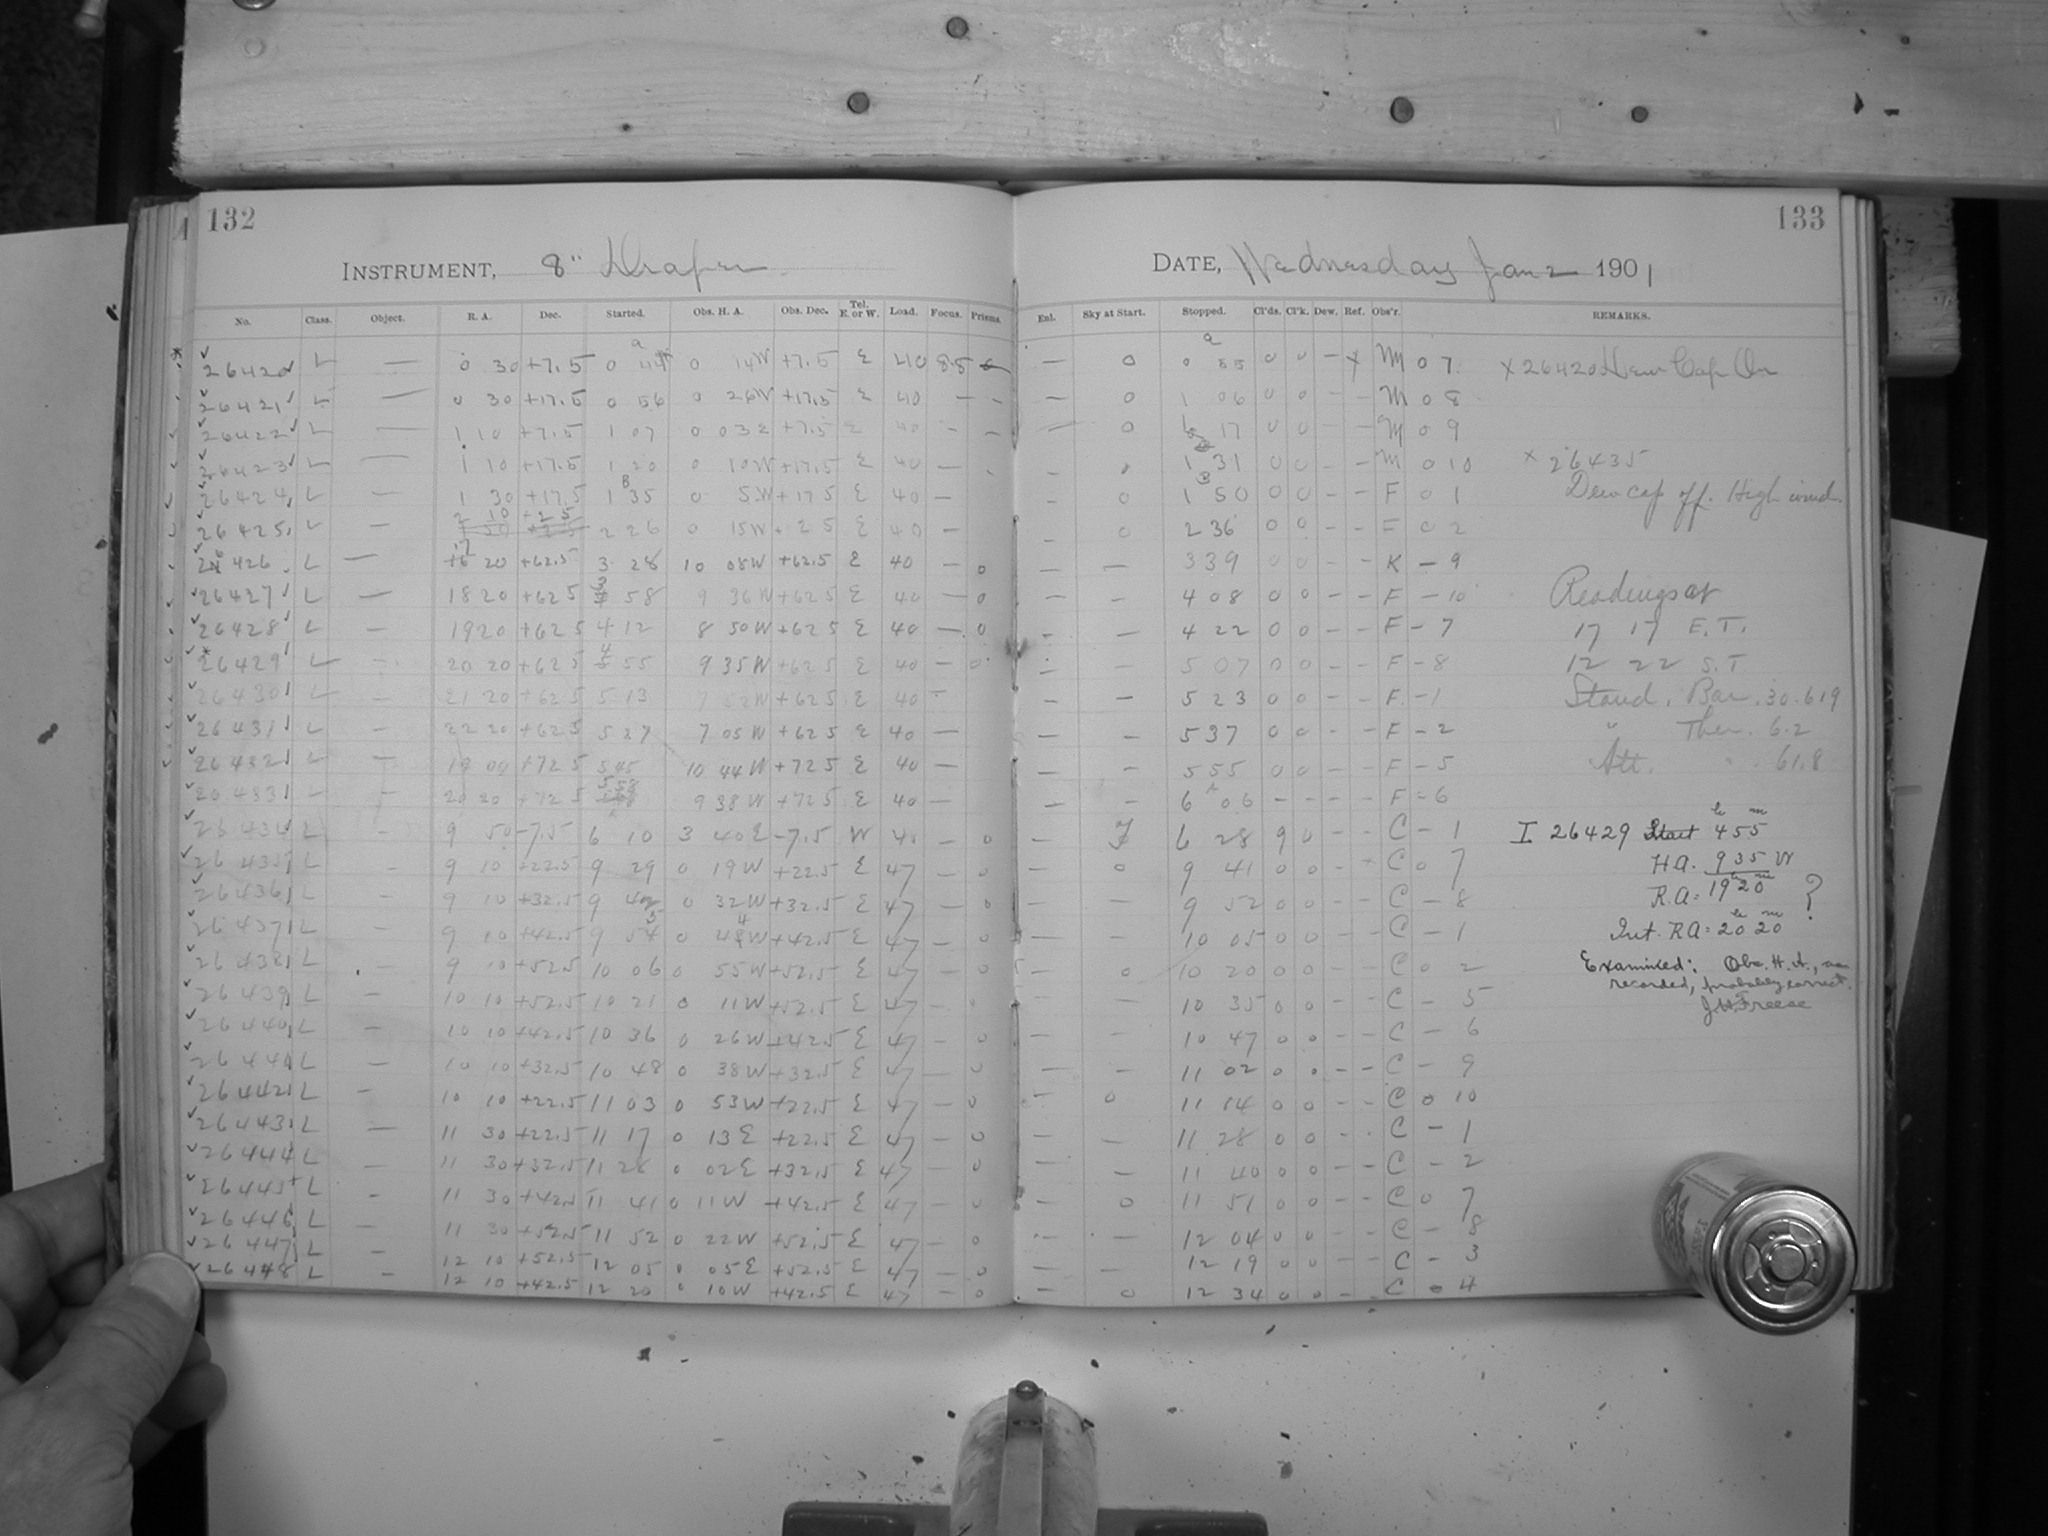 132
INSTRUMENT, 8" Draper
No. Class. Object. R. A. Dec. Started. Obs. H. A. Obs. Dec. Tel. E. or W. Load. Focus. Prisms.
26420 L — 0 30 +7.5 0 0 14W +7.5 E 40 8.5
26421 L — 0 30 +17.5 0 56 0 26W +17.5 E 40 — —
26422 L — 1 10 +7.5 1 07 0 03E +7.5 E 40 — —
26423 L — 1 10 +17.5 1 20 0 10W +17.5 E 40 — -
26424 L — 1 30 +17.5 1 35 0 5W +17 5 E 40 —
26425 L — 2 10 +2 5 2 26 0 15W + 2 5 E 40 —
26426 L — 17 20 +62.5 3 28 10 08W +62.5 E 40 — 0
26427 L — 18 20 +62 5 3 58 9 36W +62 5 E 40 — 0
26428 L — 19 20 +62 5 4 12 8 50W +62 5 E 40 — 0
26429 L — 20 20 +62 5 4 55 9 35W +62 5 E 40 — 0
26430 L — 21 20 +62 5 5 13 7 52W +62 5 E 40 —
26431 L — 22 20 +62 5 5 27 7 05W +62 5 E 40 —
26432 L — 19 00 +72 5 5 45 10 44W +72 5 E 40 —
26433 L — 20 20 +72 5 9 38W +72 5 E 40 —
26434 L — 9 50 -7.5 6 10 3 40E -7.5 W 40 — 0
26435 L — 9 10 +22.5 9 29 0 19W +22.5 E 47 — 0
26436 L — 9 10 +32.5 9 42 0 32W +32.5 E 47 — 0
26437 L — 9 10 +42.5 9 54 0 44W +42.5 E 47 — 0
26438 L — 9 10 +52.5 10 06 0 55W +52.5 E 47 — 0
26439 L — 10 10 +52.5 10 21 0 11W +52.5 E 47 — 0
26440 L — 10 10 +42.5 10 36 0 26W +42.5 E 47 — 0
26441 L — 10 10 +32.5 10 48 0 38W +32.5 E 47 — 0
26442 L — 10 10 +22.5 11 03 0 53W +22.5 E 47 — 0
26443 L — 11 30 +22.5 11 17 0 13E +22.5 E 47 — 0
26444 L — 11 30 +32.5 11 28 0 02E +32.5 E 47 — 0
26445 L — 11 30 +42.5 11 41 0 11W +42.5 E 47 — 0
26446 L — 11 30 +52.5 11 52 0 22W +52.5 E 47 — 0
26447 L — 12 10 +52.5 12 05 0 05E +52.5 E 47 — 0
26448 L — 12 10 +42.5 12 20 0 10W +42.5 E 47 — 0
133
DATE, Wednesday Jan 2 1901
Enl. Sky at Start. Stopped. Cl'ds. Cl'k. Dew. Ref. Obs'r. REMARKS.
— 0 0 55 0 0 — x M 0 7
— 0 1 06 0 0 - - M 0 8
— 0 17 0 0 - - M 0 9
0 1 31 0 0 - - M 0 10
— 0 1 50 0 0 - - F 0 1
— 0 2 36 0 0 - - F 0 2
— — 3 39 0 0 - - K - 9
— — 4 08 0 0 - - F - 10
— — 4 22 0 0 - - F - 7
— — 5 07 0 0 - - F - 8
— — 5 23 0 0 - - F - 1
— — 5 37 0 0 - - F - 2
— — 5 55 0 0 - - F - 5
— — 6 06 - - - - F - 6
— 6 28 9 0 - C - 1
— 0 9 41 0 0 - C 0 7
— — 9 52 0 0 - - C - 8
— — 10 05 0 0 - - C - 1
— 0 10 20 0 0 - - C 0 2
— — 10 35 0 0 - - C - 5
— — 10 47 0 0 - - C - 6
— — 11 02 0 0 - - C - 9
— 0 11 14 0 0 - - C 0 10
— — 11 28 0 0 - - C - 1
— — 11 40 0 0 - - C - 2
— 0 11 51 0 0 - - C 0 7
— — 12 04 0 0 - - C - 8
— — 12 19 0 0 - - C - 3
— 0 12 34 0 0 - - C 0 4
x 26420 New Cap On
x 26435
Dew cap off. High wind.
Readings at
17 17 E.T.
12 22 S.T.
Stand. Bar. 30.619
" Ther. 6.2
Att. 61.8
I 26429 Start 4h 55m
H.A. 9 35 W
R.A. = 19h 20m ?
Int. RA = 20h 20m
Examined: Obs. H. A., as
recorded, probably correct.
J.H. Freese